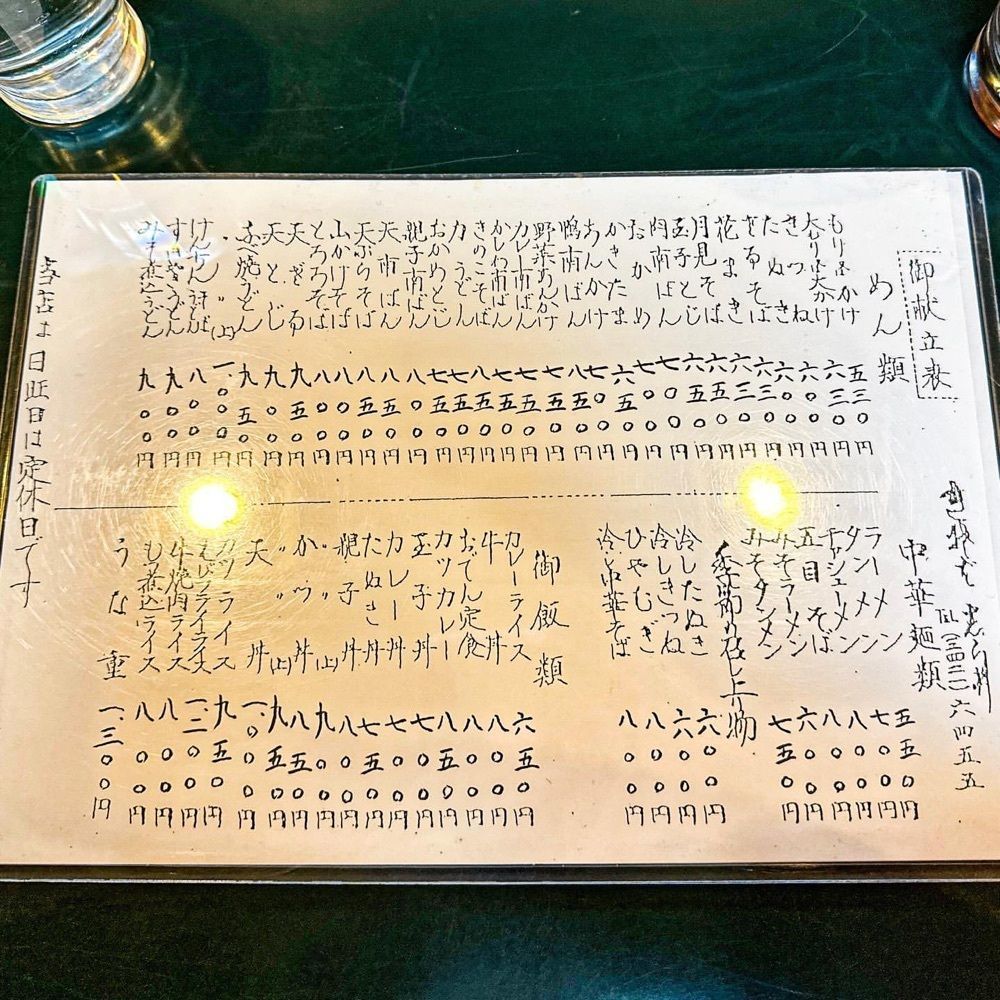 御献立表
めん類
もり又はかけ 五三〇円
大もり又は大かけ 六三〇円
きつね 六〇〇円
たぬき 六〇〇円
ざるそば 六三〇円
花まき 六三〇円
月見そば 六五〇円
玉子とじ 六五〇円
肉南ばん 七〇〇円
おかめ 七〇〇円
かきたま 六五〇円
あんかけ 七〇〇円
鴨南ばん 八五〇円
野菜あんかけ 七五〇円
カレー南ばん 七五〇円
かしわ南ばん 七五〇円
きのこそば 八五〇円
力うどん 七五〇円
おかめとじ 七五〇円
親子南ばん 八〇〇円
天南ばん 八五〇円
天ぷらそば 八五〇円
山かけそば 八〇〇円
とろろそば 八〇〇円
天ざる 九五〇円
天とじ 九〇〇円
焼うどん 九五〇円
〃 (上) 一.〇〇〇円
けんちん 八〇〇円
うどん 九〇〇円
みそ煮込うどん 九〇〇円
当店は日曜日は定休日です
TEL (三四二一)六四五五
中華麺類
ラーメン 五五〇円
タンメン 七〇〇円
チャシューメン 八〇〇円
五目そば 八〇〇円
みそラーメン 六〇〇円
みそタンメン 七五〇円
季節の召し上り物
冷したぬき 六〇〇円
冷しきつね 六〇〇円
ひやむぎ 八〇〇円
冷し中華そば 八〇〇円
御飯類
カレーライス 六五〇円
牛丼 八〇〇円
おでん定食 八〇〇円
カツカレー 八五〇円
玉子丼 七〇〇円
カレー丼 七〇〇円
たぬき丼 七五〇円
親子丼 八〇〇円
〃 (上) 九〇〇円
かつ丼 八五〇円
〃 (上) 九五〇円
天丼 一.〇〇〇円
カツライス 九五〇円
えびフライライス 一.二〇〇円
牛焼肉ライス 八〇〇円
もつ煮込ライス 八〇〇円
うな重 一.三〇〇円